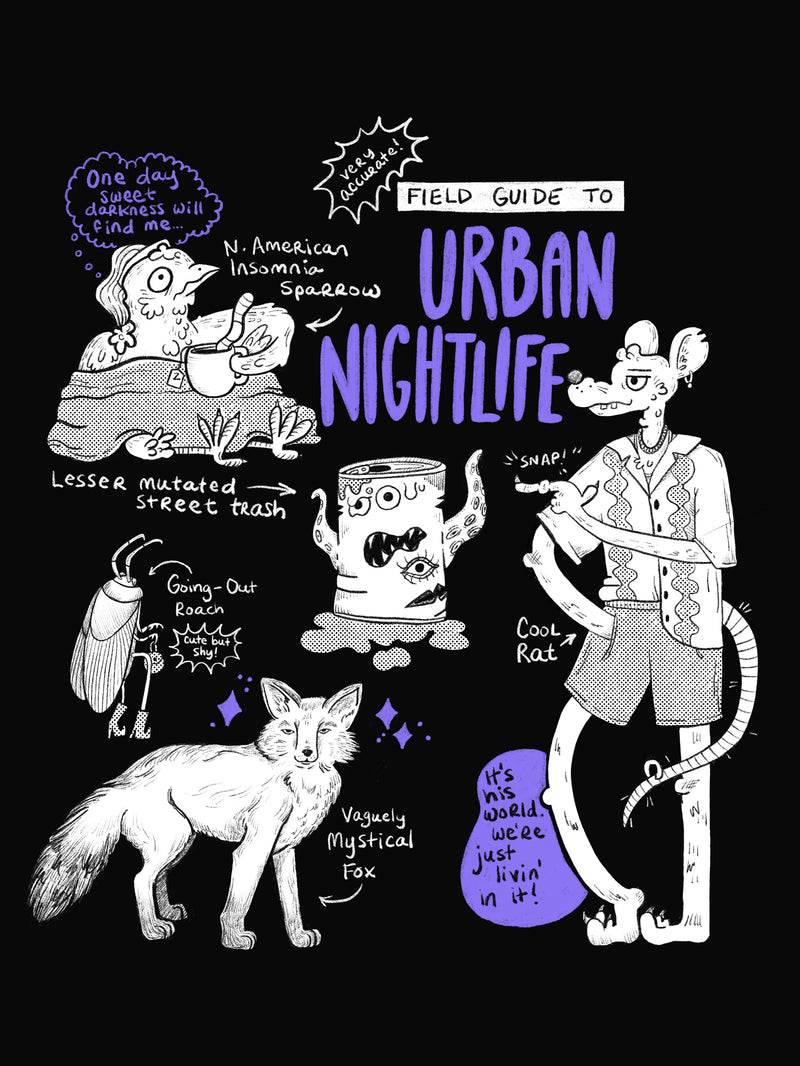 very
accurate!
FIELD GUIDE TO
URBAN
NIGHTLIFE
One day
sweet
darkness will
find me...
N. American
Insomnia
Sparrow
Lesser mutated
street trash
"SNAP!"
Going-Out
Roach
Cute but
shy!
Cool
Rat
Vaguely
Mystical
Fox
It's
his
world.
we're
just
livin'
in it!